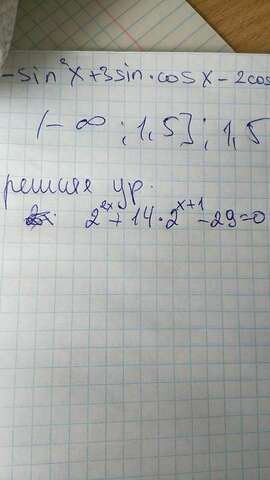 -sin²x+3sin·cosx-2cos
(-∞;1,5];1,5
решая ур.
2^{2x}+14·2^{x+1}-29=0